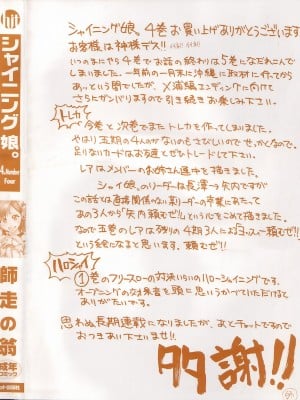 シャイニング娘。
4.Number
Four
師走の翁
成年
コミック
シャイニング娘。4巻お買い上げありがとうございます
お客様は神様デス!!
いつのまにやら4巻でお話の終わりは5巻になだれこんで
しまいました。一年前の一月末に沖縄に取材に行ってから
あっという間でしたが、
エンディングに向けて
さらにガンバりますので引き続きお楽しみ下さい。
トレカ
今巻と次巻でまたトレカを作ってしまいました。
やはり五期の4人のカードがないのもさびしいのでせっかくなので。
足りないカードはお友達とぜひトレードして下さい。
レアはメンバーのお姉さん達を描きました。
シャイ娘。のリーダーは長澤→矢内ですが
この話とは直接関係ない某リーダーの卒業にあたって
あの3人から"矢内頼むぜ!!"というのをこめて描きました。
なので五巻のレアは残りの4期3人に
頼むぜ!!
という絵になると思います。頼むぜ!!
ハロシャイ
①巻のフリースローの対決いらいのハローシャイニングです。
オープニングの対決者を頭に思いうかべていただけると
ありがたいです。
思わぬ長期連載になりましたが、あとチョットですので
おつきあい下さいませ!!
多謝!!